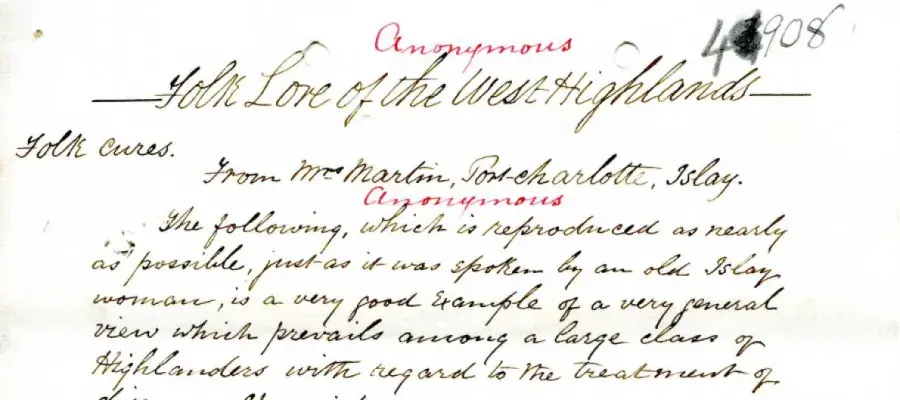 Anonymous
908
Folk Lore of the West Highlands
Folk cures.
From Mrs Martin, Port-charlotte, Islay.
Anonymous
The following, which is reproduced as nearly
as possible, just as it was spoken by an old Islay
woman, is a very good example of a very general
view which prevails among a large class of
Highlanders with regard to the treatment of